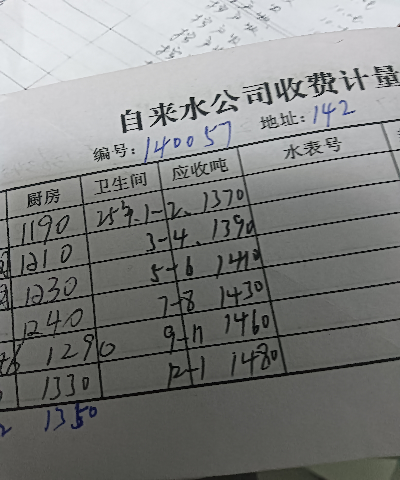 自来水公司收费计量
编号: 140057 地址: 142
厨房 卫生间 应收吨 水表号
1190 25年.1-2. 1370
1210 3-4. 1390
1230 5-6 1410
1240 7-8 1430
1290 9-11 1460
1330 12-1 1480
1350